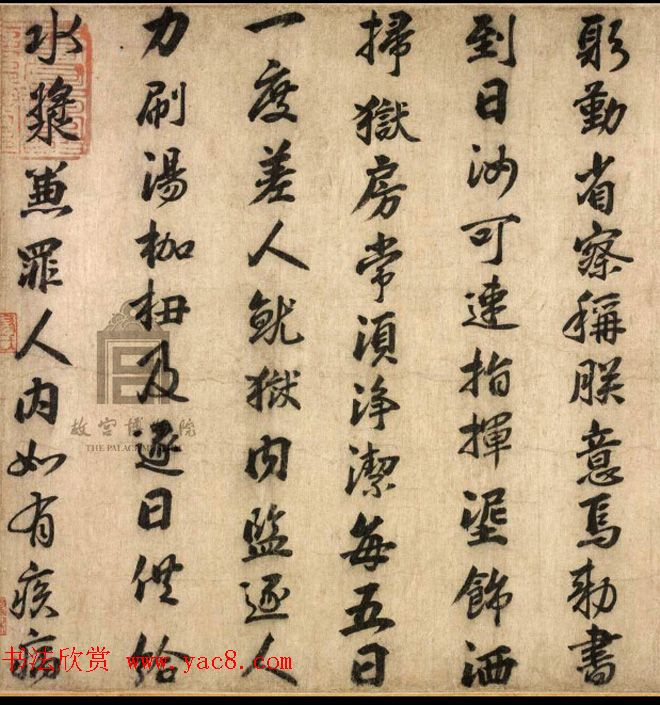 躬勤省察稱朕意焉勅書
到日汝可速指揮埿飾洒
掃獄房常湏淨潔每五日
一度差人就獄内監逐人
力刷湯枷杻及逐日供給
水漿兼罪人内如有疾病
故宫博物院
THE PALACE MUSEUM
书法欣赏 www.yac8.com